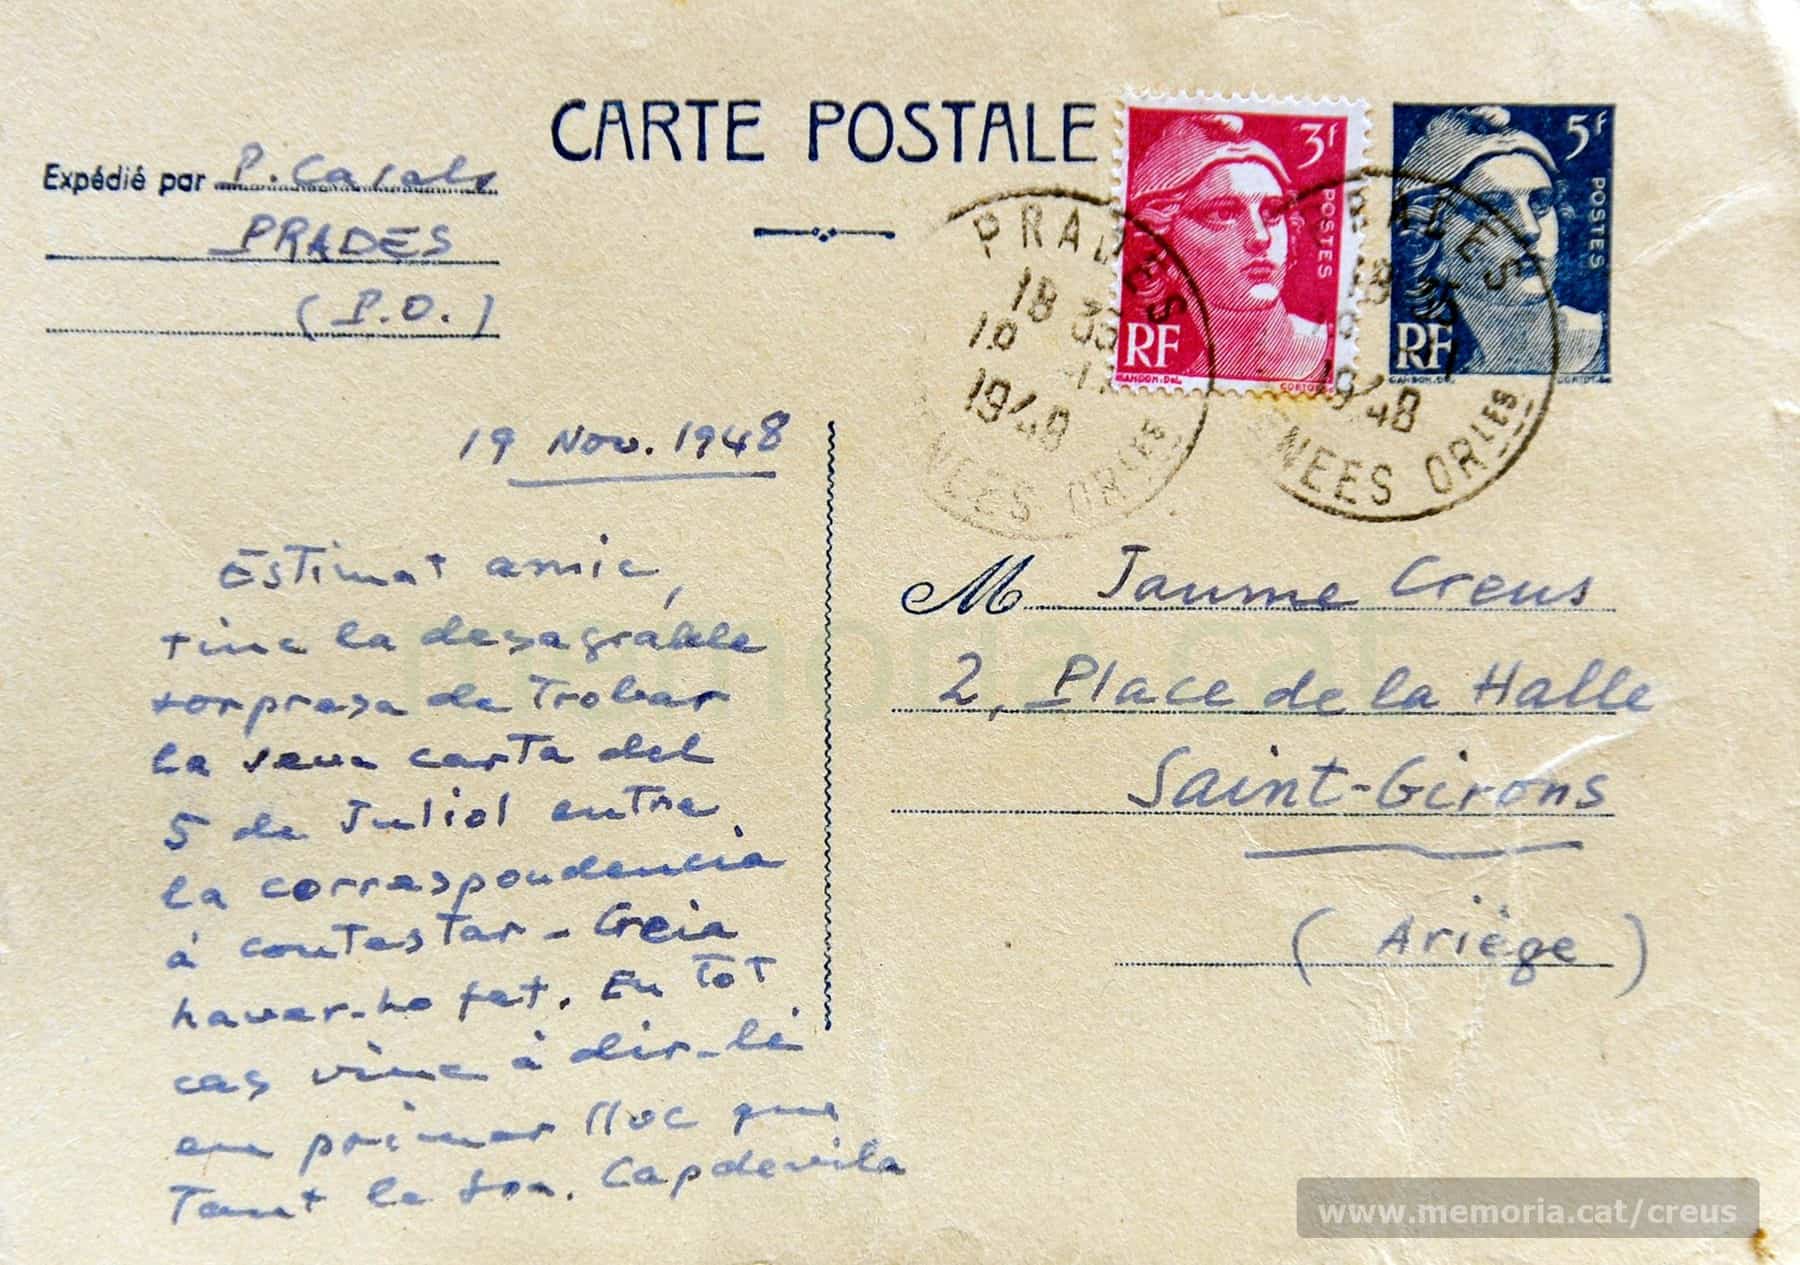 CARTE POSTALE
Expédié par P. Casals
PRADES
(P.O.)
3f
POSTES
RF
GANDON.DEL
5f
POSTES
RF
GANDON.DEL
PRADES
18 35
1948
NEES ORLES
1948
NEES ORLES
19 Nov. 1948
Estimat amic,
tinc la desagráble
sorpresa de trobar
la seva carta del
5 de Juliol entre
la correspondencia
à contestar - Creia
haver-ho fet. En tot
cas vinc à dir-li
en primer lloc que
Tant la Sra. Capdevila
M Jaume Creus
2, Place de la Halle
Saint-Girons
(Ariège)
memoria.cat
www.memoria.cat/creus